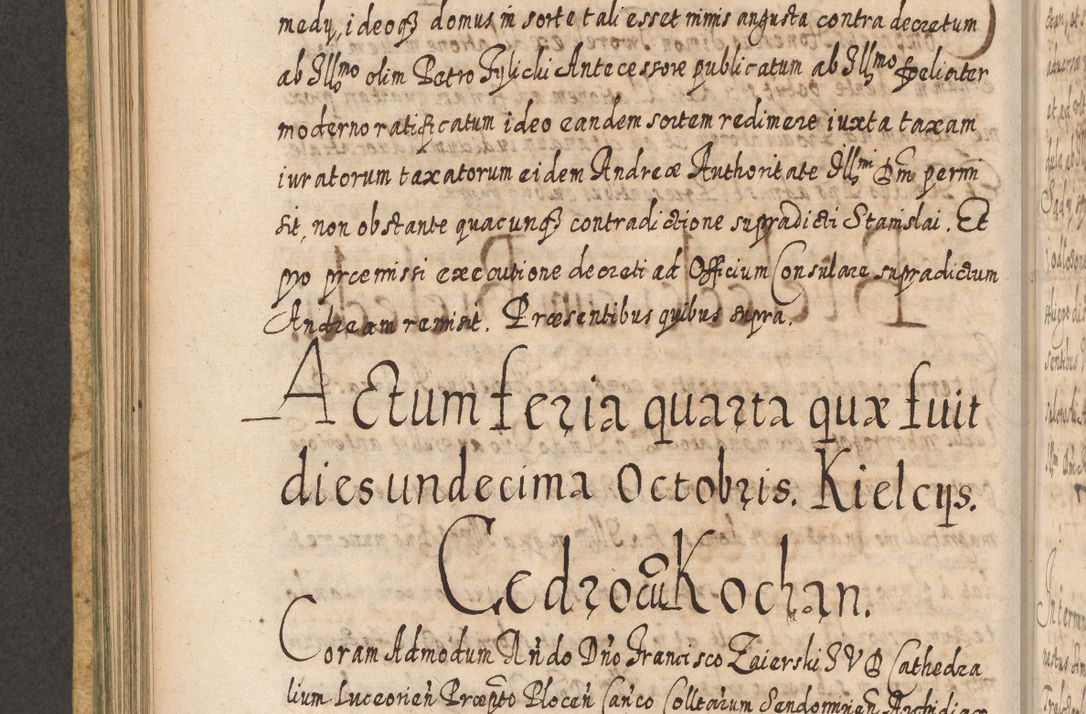 medy, ideoq3 domus in sorte tali esset nimis angusta contra decretum
ab Illmo olim Petro Gylicki Antecessore publicatum ab Illmo feliciter
moderno ratificatum ideo eandem sortem redimere iuxta taxam
iuratorum taxatorum eidem Andreæ Authoritate Illmi Dni permi
sit, non obstante quacunq3 contradictione supradicti Stanislai. Et
pro præmissi executione decreti ad Officium Consulare supradictum
Andream remisit. Præsentibus quibus supra.
Actum feria quarta quæ fuit
dies undecima Octobris. Kielcijs.
Cedro cu Kochan.
Coram Admodum Rndo Dño Francisco Zaierski IVD Cathedra
lium Luceorień Præpto Ploceń Canco Colltarum Sendomirień Archidiac